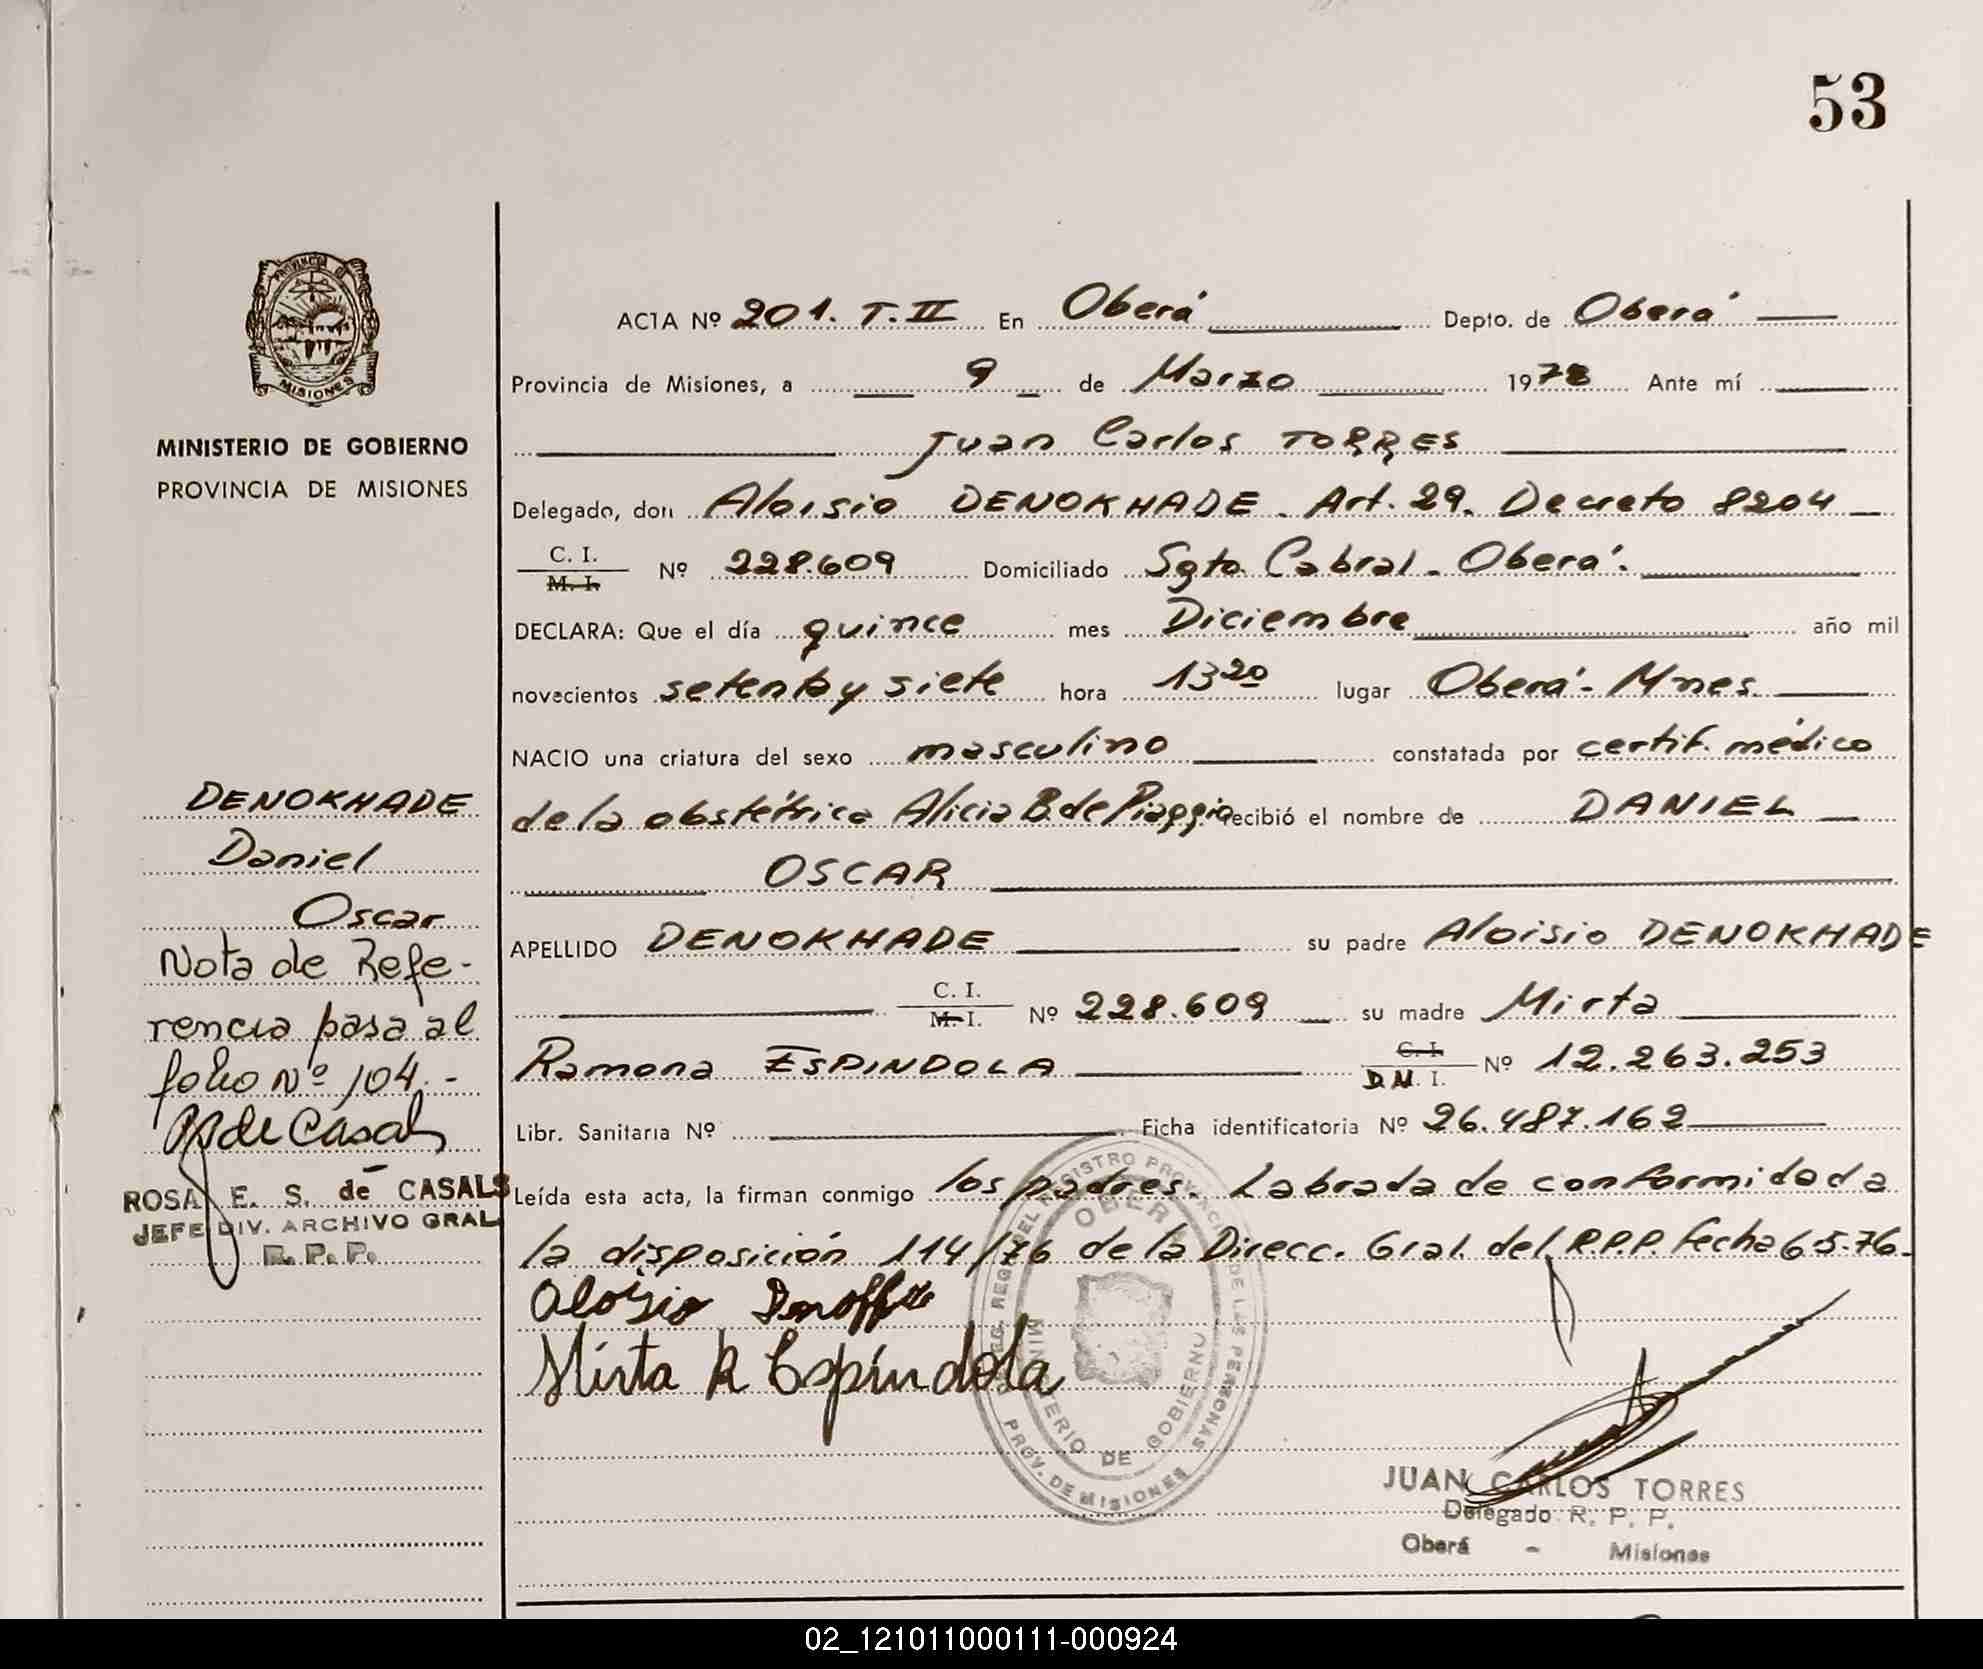 53
PROVINCIA DE
MISIONES
MINISTERIO DE GOBIERNO
PROVINCIA DE MISIONES
ACTA Nº 201. T. II En Oberá Depto. de Oberá
Provincia de Misiones, a 9 de Marzo 1978 Ante mí
Juan Carlos TORRES
Delegado, don Aloisio DENOKHADE. Art. 29. Decreto 8204
C. I.
M. I. Nº 228.609 Domiciliado Sgto Cabral - Oberá.
DECLARA: Que el día quince mes Diciembre año mil
novecientos setenta y siete hora 13 20 lugar Oberá - Mnes.
NACIO una criatura del sexo masculino constatada por certif. médico
de la obstétrica Alicia B. de Piaggio recibió el nombre de DANIEL
OSCAR
APELLIDO DENOKHADE su padre Aloisio DENOKHADE
C. I.
M. I. Nº 228.609 su madre Mirta
Ramona ESPINDOLA C. I. D.N. I. Nº 12.263.253
Libr. Sanitaria Nº Ficha identificatoria Nº 26.487.162
Leída esta acta, la firman conmigo los padres. Labrada de conformidad a
la disposición 114/76 de la Direcc. Gral. del R.P.P. fecha 6-5-76.
Aloisio
Mirta R Espíndola
DENOKHADE
Daniel
Oscar
Nota de Refe-
rencia pasa al
folio Nº 104.-
de Casals
ROSA E. S. de CASALS
JEFE DIV. ARCHIVO GRAL.
R. P. P.
REGISTRO PROVINCIAL DE LAS PERSONAS
PROV. DE MISIONES
OBERA
MINISTERIO DE GOBIERNO
JUAN CARLOS TORRES
Delegado R. P. P.
Oberá - Misiones
02_121011000111-000924